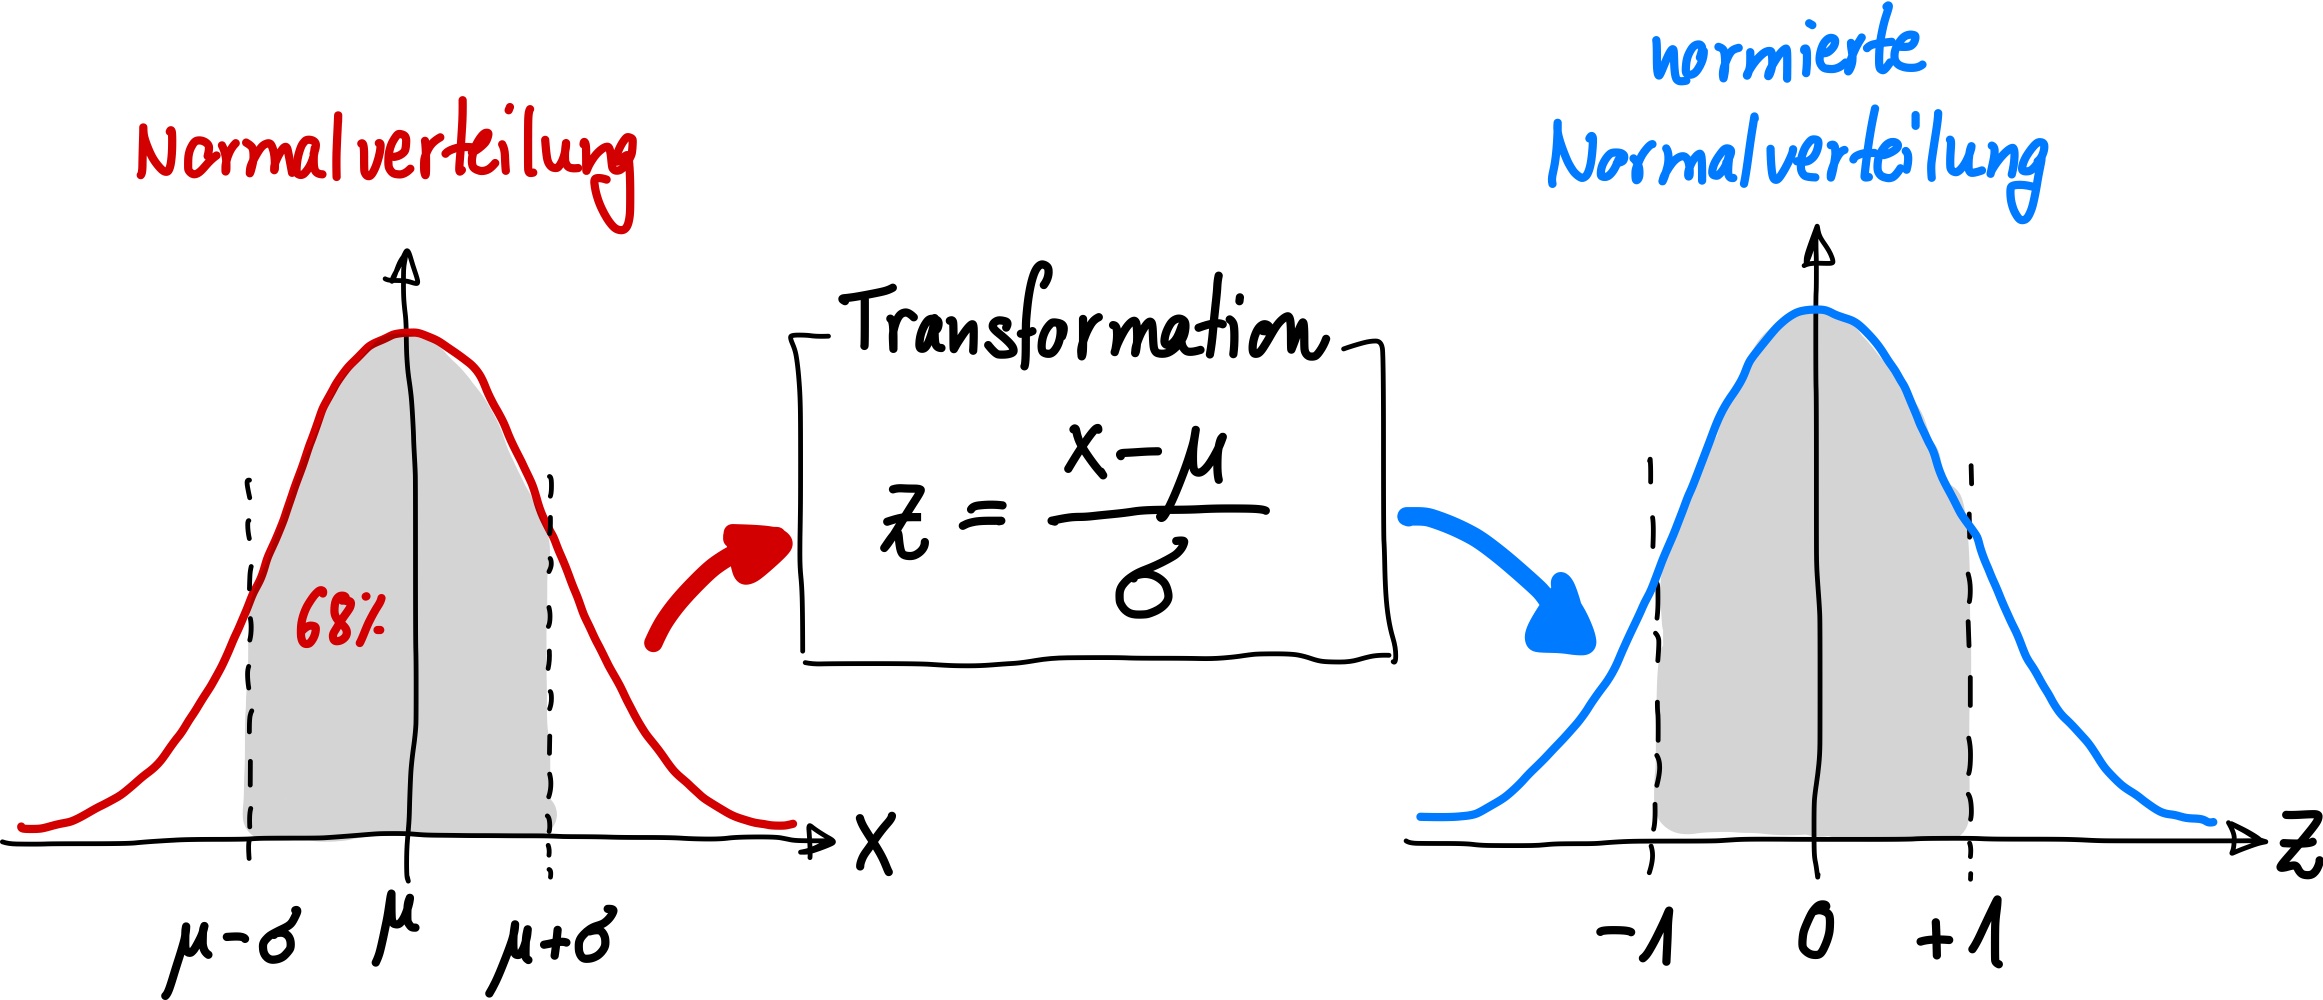 Normalverteilung
68%
μ-σ
μ
μ+σ
x
Transformation
z = (x-μ)/σ
normierte
Normalverteilung
-1
0
+1
z